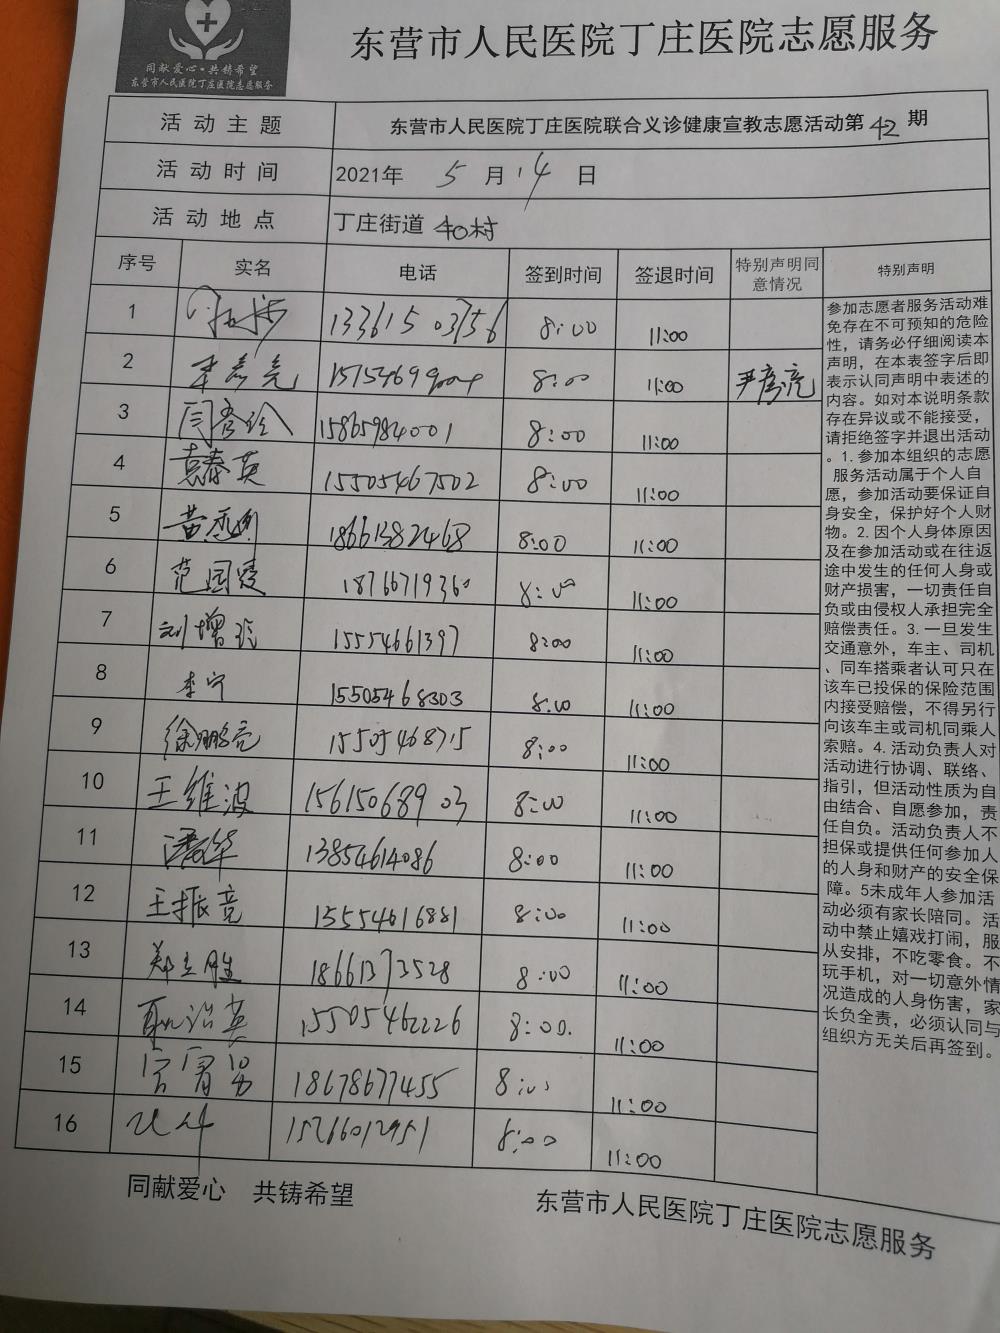 同献爱心·共铸希望
东营市人民医院丁庄医院志愿服务
东营市人民医院丁庄医院志愿服务
活动主题 东营市人民医院丁庄医院联合义诊健康宣教志愿活动第42期
活动时间 2021年 5 月 14 日
活动地点 丁庄街道 40村
序号 实名 电话 签到时间 签退时间 特别声明同意情况 特别声明
1 8:00 11:00
2 8:00 11:00
3 15865984001 8:00 11:00
4 袁春英 15505467502 8:00 11:00
5 18661382468 8:00 11:00
6 范国霞 18766719360 8:00 11:00
7 刘增玲 15554661397 8:00 11:00
8 李宁 15505468303 8:00 11:00
9 徐鹏亮 15505468715 8:00 11:00
10 王维波 15615068903 8:00 11:00
11 13854614086 8:00 11:00
12 王振竞 15554616881 8:00 11:00
13 郑立胜 18661373528 8:00 11:00
14 15505462226 8:00. 11:00
15 18678677455 8:00 11:00
16 8:00 11:00
参加志愿者服务活动难
免存在不可预知的危险
性，请务必仔细阅读本
声明，在本表签字后即
表示认同声明中表述的
内容。如对本说明条款
存在异议或不能接受，
请拒绝签字并退出活动
。1.参加本组织的志愿
服务活动属于个人自
愿，参加活动要保证自
身安全，保护好个人财
物。2.因个人身体原因
及在参加活动或在往返
途中发生的任何人身或
财产损害，一切责任自
负或由侵权人承担完全
赔偿责任。3.一旦发生
交通意外，车主、司机
、同车搭乘者认可只在
该车已投保的保险范围
内接受赔偿，不得另行
向该车主或司机同乘人
索赔。4.活动负责人对
活动进行协调、联络、
指引，但活动性质为自
由结合、自愿参加，责
任自负。活动负责人不
担保或提供任何参加人
的人身和财产的安全保
障。5未成年人参加活
动必须有家长陪同。活
动中禁止嬉戏打闹，服
从安排，不吃零食。不
玩手机，对一切意外情
况造成的人身伤害，家
长负全责，必须认同与
组织方无关后再签到。
同献爱心 共铸希望 东营市人民医院丁庄医院志愿服务